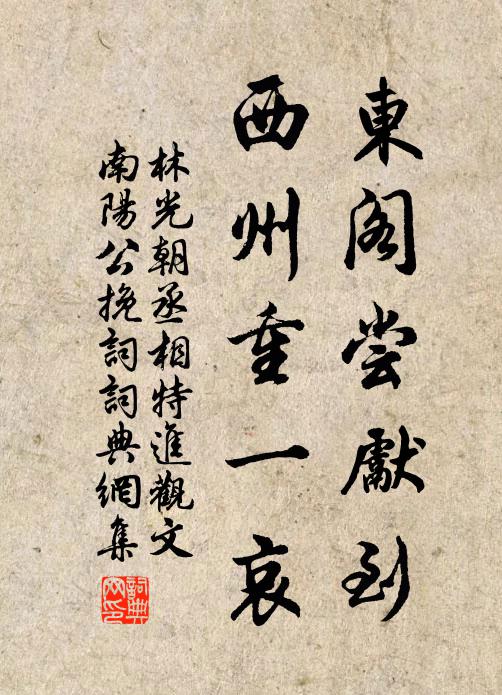 東閣嘗獻到
西州重一哀
林光朝丞相特進觀文
南陽公挽詞詞典網集
詞典網印